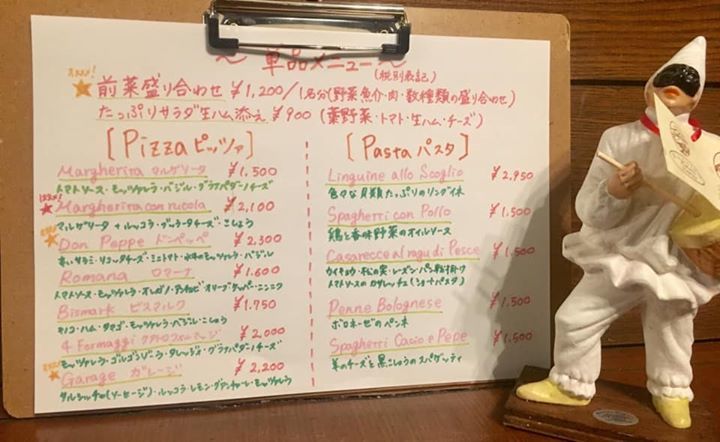 〜 単品メニュー 〜
(税別表記)
オススメ!
前菜盛り合わせ ¥1,200/1名分(野菜・魚介・肉・数種類の盛り合わせ)
たっぷりサラダ生ハム添え ¥900 (葉野菜・トマト・生ハム・チーズ)
[Pizza ピッツァ]
Margherita マルゲリータ ¥1,500
トマトソース・モッツァレラ・バジル・グラナパダーノチーズ
オススメ!
Margherita con rucola ¥2,100
マルゲリータ + ルッコラ・ブッラータチーズ・こしょう
Don Peppe ドンペッペ ¥2,300
辛いサラミ・リコッタチーズ・ミニトマト・水牛のモッツァレラ・バジル
Romana ロマーナ ¥1,600
トマトソース・モッツァレラ・オレガノ・アンチョビ・オリーブ・ケッパー・ニンニク
Bismark ビスマルク ¥1,750
キノコ・ハム・タマゴ・モッツァレラ・バジル・こしょう
4 Formaggi クアトロフォルマッジ ¥2,000
モッツァレラ・ゴルゴンゾーラ・タレッジョ・グラナパダーノチーズ
Garage ガレージ ¥2,200
サルシッチャ(ソーセージ)・ルッコラ・レモン・グアンチャーレ・モッツァレラ
[Pasta パスタ]
Linguine allo Scoglio ¥2,950
色々な貝類たっぷりのリングイネ
Spagherri con Pollo ¥1,500
鶏と香味野菜のオイルソース
Casarecce al ragu di Pesce ¥1,500
ウイキョウ・松の実・レーズン・パン粉
トマトソースのカサレッチェ(ショートパスタ)
Penne Bolognese ¥1,500
ボロネーゼのペンネ
Spagherri Cacio e Pepe ¥1,500
羊のチーズと黒こしょうのスパゲッティ